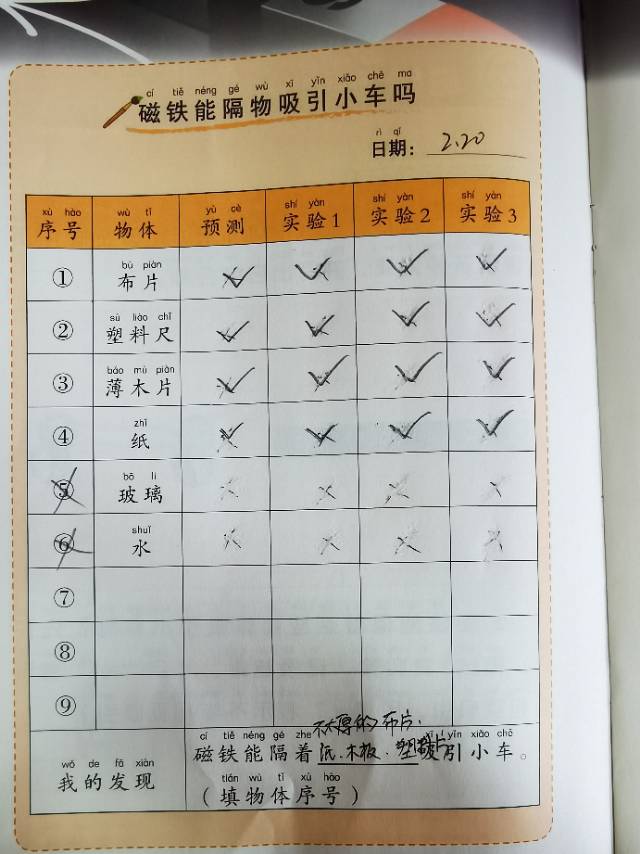 cí tiě néng gé wù xī yǐn xiǎo chē ma
磁铁能隔物吸引小车吗
rì qī
日期： 2.20
xù hào wù tǐ yù cè shí yàn shí yàn shí yàn
序号 物体 预测 实验1 实验2 实验3
bù piàn
① 布片 ✓ ✓ ✓ ✓
sù liào chǐ
② 塑料尺 ✓ ✓ ✓ ✓
báo mù piàn
③ 薄木片 ✓ ✓ ✓ ✓
zhǐ
④ 纸 ✓ ✓ ✓ ✓
bō li
⑤ 玻璃 × × × ×
shuǐ
⑥ 水 × × × ×
⑦
⑧
⑨
不太厚的布片、
cí tiě néng gé zhe xī yǐn xiǎo chē
磁铁能隔着纸、木板、吸引小车。
wǒ de fā xiàn
我的发现
tián wù tǐ xù hào
（填物体序号）